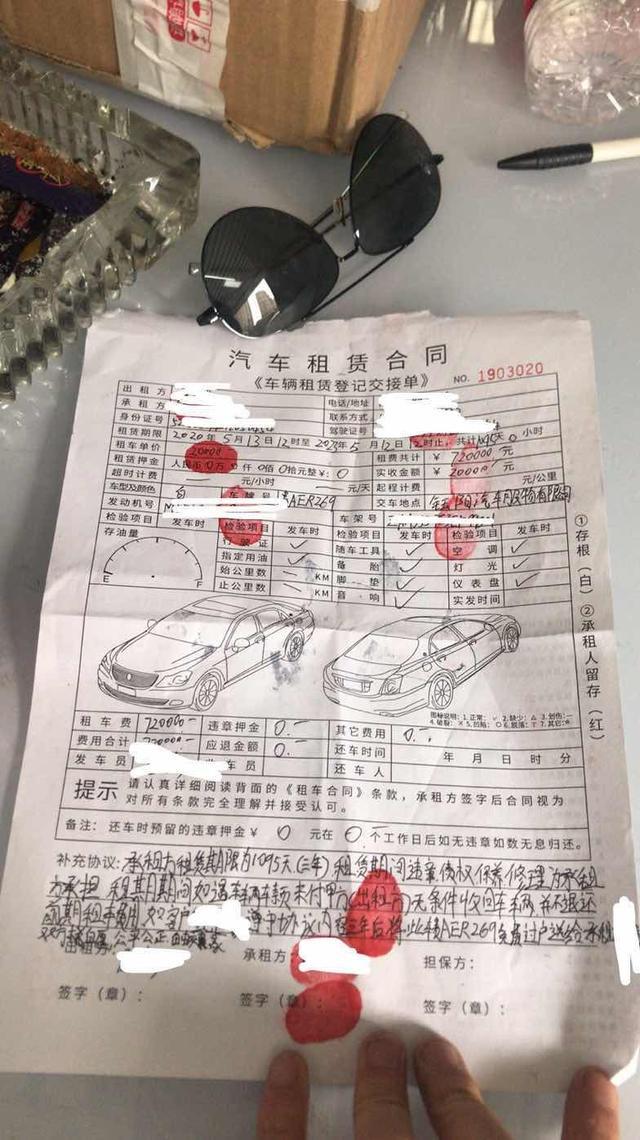 汽车租赁合同
《车辆租赁登记交接单》 NO. 1903020
出租方 电话/地址
承租方 联系方式
身份证号 驾驶证号
租赁期限 2020年5月13日12时至2023年5月12日12时止，共计1095天0小时
租车单价 租赁共计 ￥720000元
租赁押金 人民币 万 仟0佰0拾元整￥:0 实收金额 ￥20000元
超时计费 元/小时 元/天 起程计费 元/公里
车型及颜色 白 车牌号 AER269 交车地点
发动机号 车架号
检验项目 发车时 检验项目 发车时 检验项目 发车时 检验项目 发车时
存油量 行驶证 ✓ 随车工具 ✓ 空调 ✓
指定用油 ✓ 备胎 ✓ 灯光 ✓
始公里数 KM 脚垫 ✓ 仪表盘 ✓
E F 止公里数 KM 音响 ✓ 实发时间
①存根（白）②承租人留存（红）
图标说明：1.正常：✓ 2.缺少：△ 3.划伤：—
4.破裂：× 5.凹陷：○ 6.脱落：T 7.其它：☆
租车费 720000- 违章押金 0.- 其它费用 0.-
费用合计 应退金额 0.- 还车时间 年 月 日 时 分
发车员 发车员 还车人
提示 请认真详细阅读背面的《租车合同》条款，承租方签字后合同视为
对所有条款完全理解并接受认可。
备注：还车时预留的违章押金￥ 0 元在 0 个工作日后如无违章如数无息归还。
补充协议：承租方租赁期限为1095天（三年）租赁期间违章债权保养修理为承租
方承担 租赁期间如遇车辆 款未付甲方（出租方）无条件收回车辆并不退还
前期租车费用 如客户 遵守协议内容三年后将此辆AER269免费过户送给承租
双方 自愿 公平公正
出租方： 承租方： 担保方：
签字（章）： 签字（章）： 签字（章）：